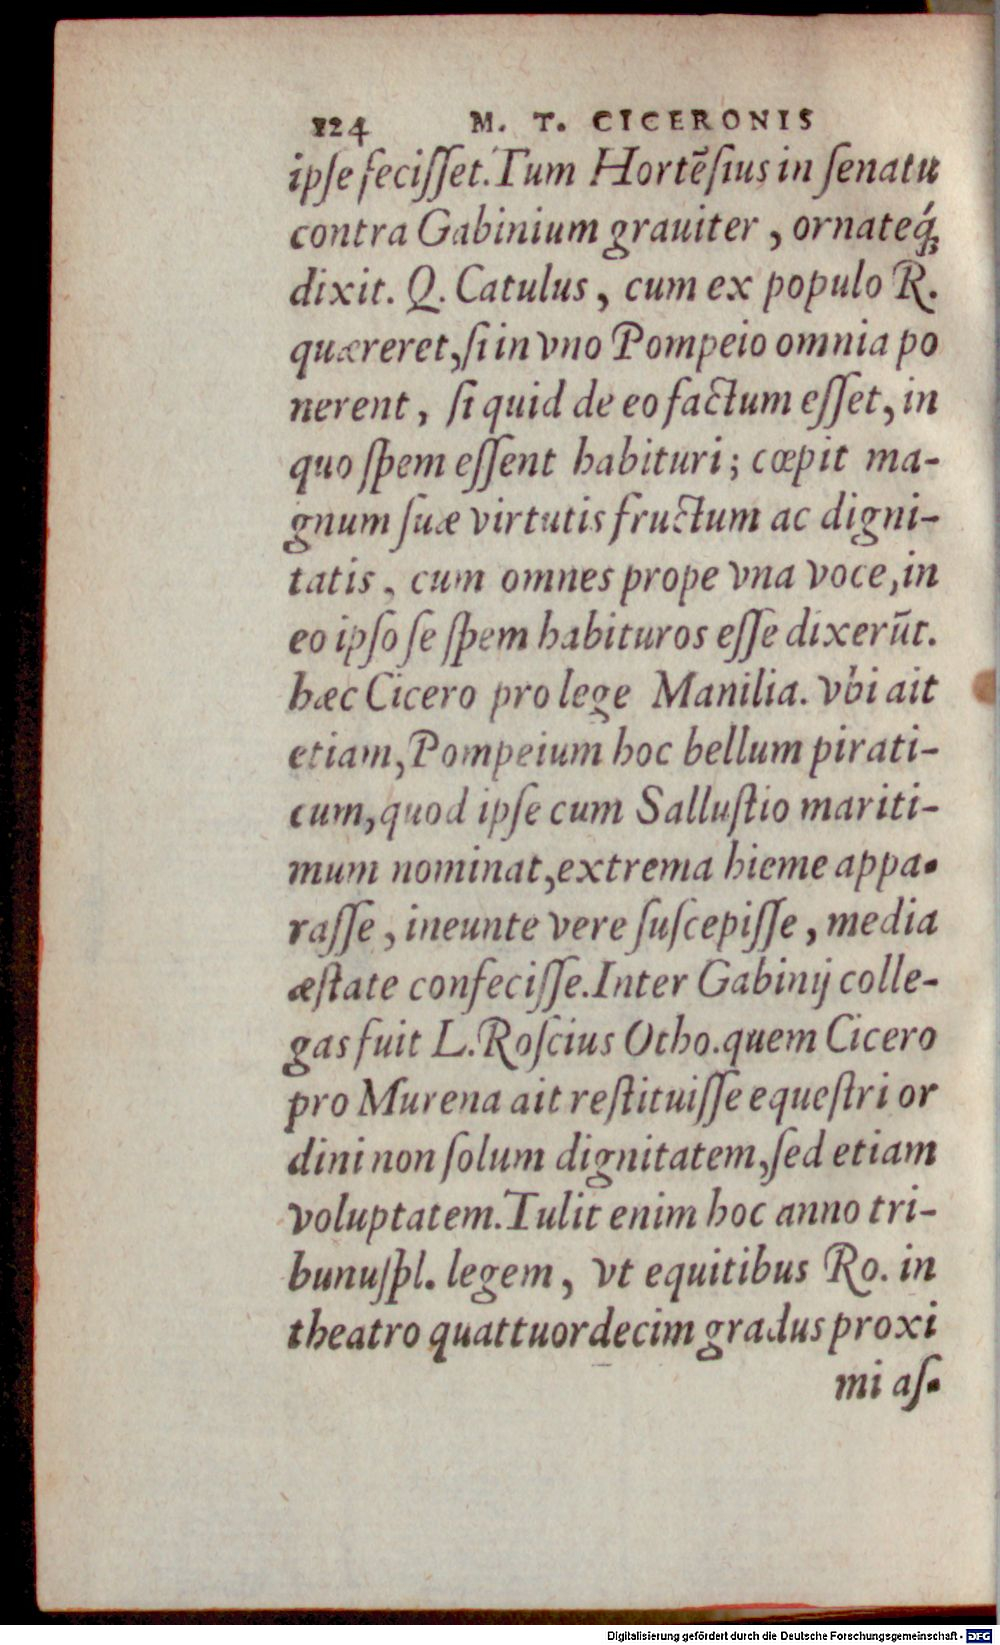 124 M. T. CICERONIS
ipſe feciſſet. Tum Hortēſius in ſenatu
contra Gabinium grauiter, ornateq́;
dixit. Q. Catulus, cum ex populo R.
quæreret, ſi in vno Pompeio omnia po
nerent, ſi quid de eo factum eſſet, in
quo ſpem eſſent habituri; cœpit ma-
gnum ſuæ virtutis fructum ac digni-
tatis, cum omnes prope vna voce, in
eo ipſo ſe ſpem habituros eſſe dixerūt.
hæc Cicero pro lege Manilia. vbi ait
etiam, Pompeium hoc bellum pirati-
cum, quod ipſe cum Salluſtio mariti-
mum nominat, extrema hieme appa-
raſſe, ineunte vere ſuſcepiſſe, media
æſtate confeciſſe. Inter Gabinij colle-
gas fuit L. Roſcius Otho. quem Cicero
pro Murena ait reſtituiſſe equeſtri or
dini non ſolum dignitatem, ſed etiam
voluptatem. Tulit enim hoc anno tri-
bunuſpl. legem, vt equitibus Ro. in
theatro quattuordecim gradus proxi
mi aſ-
Digitalisierung gefördert durch die Deutsche Forschungsgemeinschaft - DFG